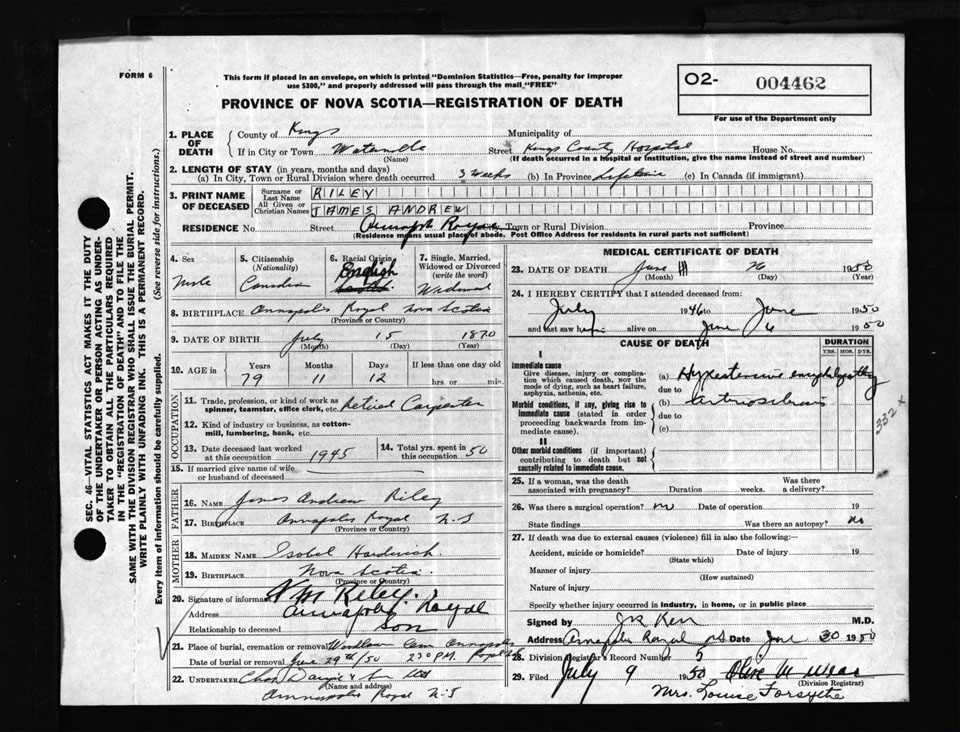 FORM 6
This form if placed in an envelope, on which is printed "Dominion Statistics—Free, penalty for improper
use $300," and properly addressed will pass through the mail "FREE"
O2- 004462
For use of the Department only
PROVINCE OF NOVA SCOTIA—REGISTRATION OF DEATH
SEC. 46—VITAL STATISTICS ACT MAKES IT THE DUTY
OF THE UNDERTAKER OR PERSON ACTING AS UNDER-
TAKER TO OBTAIN ALL THE PARTICULARS REQUIRED
IN THE "REGISTRATION OF DEATH" AND TO FILE THE
SAME WITH THE DIVISION REGISTRAR WHO SHALL ISSUE THE BURIAL PERMIT.
WRITE PLAINLY WITH UNFADING INK. THIS IS A PERMANENT RECORD.
Every item of information should be carefully supplied. (See reverse side for instructions.)
1. PLACE OF DEATH
County of Kings Municipality of
If in City or Town Street Kings County Hospital House No.
(Name) (If death occurred in a hospital or institution, give the name instead of street and number)
2. LENGTH OF STAY (in years, months and days)
(a) In City, Town or Rural Division where death occurred 3 weeks (b) In Province (c) In Canada (if immigrant)
3. PRINT NAME OF DECEASED
Surname or Last Name RILEY
All Given or Christian Names JAMES ANDREW
RESIDENCE No. Street Annapolis Royal Town or Rural Division Province
(Residence means usual place of abode. Post Office Address for residents in rural parts not sufficient)
4. Sex
male
5. Citizenship (Nationality)
Canadian
6. Racial Origin
English
7. Single, Married, Widowed or Divorced (write the word)
Widowed
8. BIRTHPLACE Annapolis Royal Nova Scotia
(Province or Country)
9. DATE OF BIRTH July 15 1870
(Month) (Day) (Year)
10. AGE in Years Months Days If less than one day old
79 11 12 hrs. or min.
OCCUPATION
11. Trade, profession, or kind of work as
spinner, teamster, office clerk, etc. Retired Carpenter
12. Kind of industry or business, as cotton-
mill, lumbering, bank, etc.
13. Date deceased last worked at this occupation 1945
14. Total yrs. spent in this occupation 50
15. If married give name of wife
or husband of deceased
FATHER
16. NAME James Andrew Riley
17. BIRTHPLACE Annapolis Royal N.S
(Province or Country)
MOTHER
18. MAIDEN NAME Isobel Hardwick
19. BIRTHPLACE Nova Scotia
(Province or Country)
20. Signature of informant V M Riley.
Address Annapolis Royal
Relationship to deceased Son
21. Place of burial, cremation or removal Woodlawn Cem Annapolis
Date of burial or removal June 29th/50 2 30 P.M. Royal
22. UNDERTAKER Chas
(Name and address)
Annapolis Royal N.S
MEDICAL CERTIFICATE OF DEATH
23. DATE OF DEATH June 26 1950
(Month) (Day)
24. I HEREBY CERTIFY that I attended deceased from:
July 1946 to June 1950
and that saw him alive on June 6 1950
CAUSE OF DEATH DURATION
YRS. MOS. DYS.
I
Immediate cause
Give disease, injury or complica-
tion which caused death, not the
mode of dying, such as heart failure,
asphyxia, asthenia, etc.
(a) Hypertensive encephalopathy
due to
Morbid conditions, if any, giving rise to
immediate cause (stated in order
proceeding backwards from im-
mediate cause).
(b) arteriosclerosis
due to
(c)
332 x
II
Other morbid conditions (if important)
contributing to death but not
causally related to immediate cause.
25. If a woman, was the death
associated with pregnancy? Duration weeks. Was there
a delivery?
26. Was there a surgical operation? no Date of operation 19
State findings Was there an autopsy? no
27. If death was due to external causes (violence) fill in also the following:
Accident, suicide or homicide? Date of injury 19
(State which)
Manner of injury
(How sustained)
Nature of injury
Specify whether injury occurred in industry, in home, or in public place
Signed by M.D.
Address Annapolis Royal NS Date June 30 1950
28. Division Registrar's Record Number 5
29. Filed July 9 1950 Olive M
(Division Registrar)
Mrs. Louise Forsythe